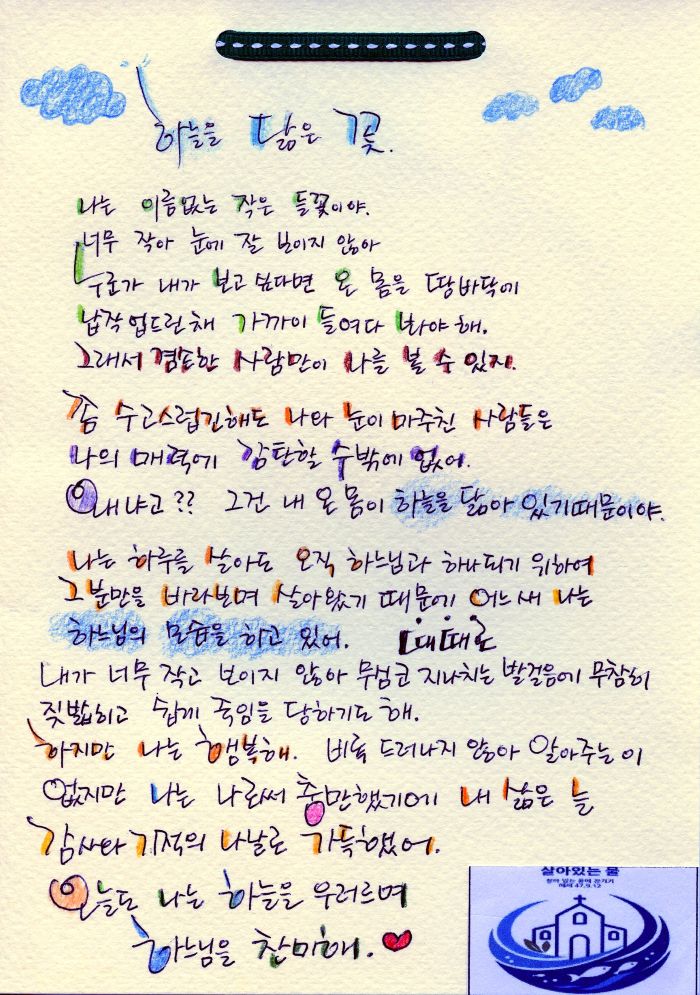 하늘을 닮은 꽃.
나는 이름없는 작은 들꽃이야.
너무 작아 눈에 잘 보이지 않아
누군가 내가 보고 싶다면 온 몸을 땅바닥에
납작 엎드린채 가까이 들여다 봐야 해.
그래서 겸손한 사람만이 나를 볼 수 있지.
좀 수고스럽긴해도 나와 눈이 마주친 사람들은
나의 매력에 감탄할 수밖에 없어.
왜냐고?? 그건 내 온 몸이 하늘을 닮아 있기때문이야.
나는 하루를 살아도 오직 하느님과 하나되기 위하여
그 분만을 바라보며 살아왔기 때문에 어느새 나는
하느님의 모습을 하고 있어. 때때로
내가 너무 작고 보이지 않아 무심코 지나치는 발걸음에 무참히
짓밟히고 쉽게 죽임을 당하기도 해.
하지만 나는 행복해. 비록 드러나지 않아 알아주는 이
없지만 나는 나로써 충만했기에 내 삶은 늘
감사와 기적의 나날로 가득했어.
오늘도 나는 하늘을 우러르며
하느님을 찬미해.
살아있는 물
에제 47,9.12